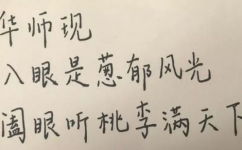 华师现
入眼是葱郁风光
阖眼听桃李满天下